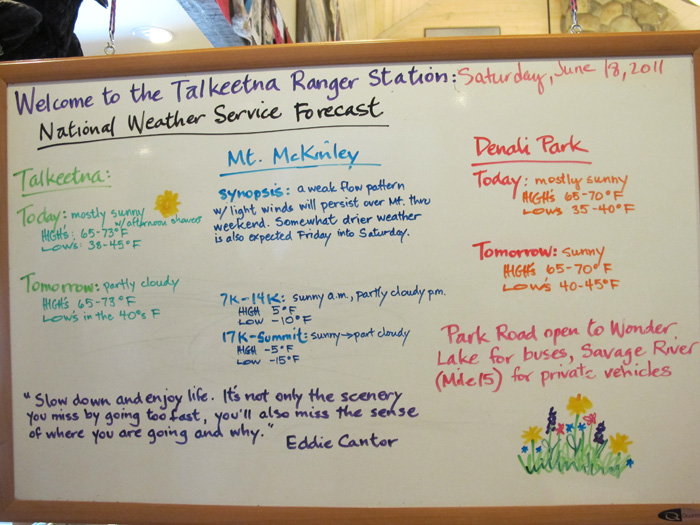 Welcome to the Talkeetna Ranger Station: Saturday, June 18, 2011
National Weather Service Forecast
Talkeetna:
Today: mostly sunny
w/afternoon showers
HIGH's: 65-73°F
LOW's: 38-45°F
Tomorrow: partly cloudy
HIGH's 65-73°F
LOW's in the 40's F
Mt. McKinley
SYNOPSIS: a weak flow pattern
w/ light winds will persist over Mt. thru
weekend. Somewhat drier weather
is also expected Friday into Saturday.
7K-14K: sunny a.m., partly cloudy pm.
HIGH 5°F
LOW -10°F
17K-Summit: sunny→part cloudy
HIGH -5°F
LOW -15°F
Denali Park
Today: mostly sunny
HIGHs 65-70°F
LOWs 35-40°F
Tomorrow: sunny
HIGH's 65-70°F
LOW's 40-45°F
Park Road open to Wonder
Lake for buses, Savage River
(Mile 15) for private vehicles
"Slow down and enjoy life. It's not only the scenery
you miss by going too fast, you'll also miss the sense
of where you are going and why."
Eddie Cantor